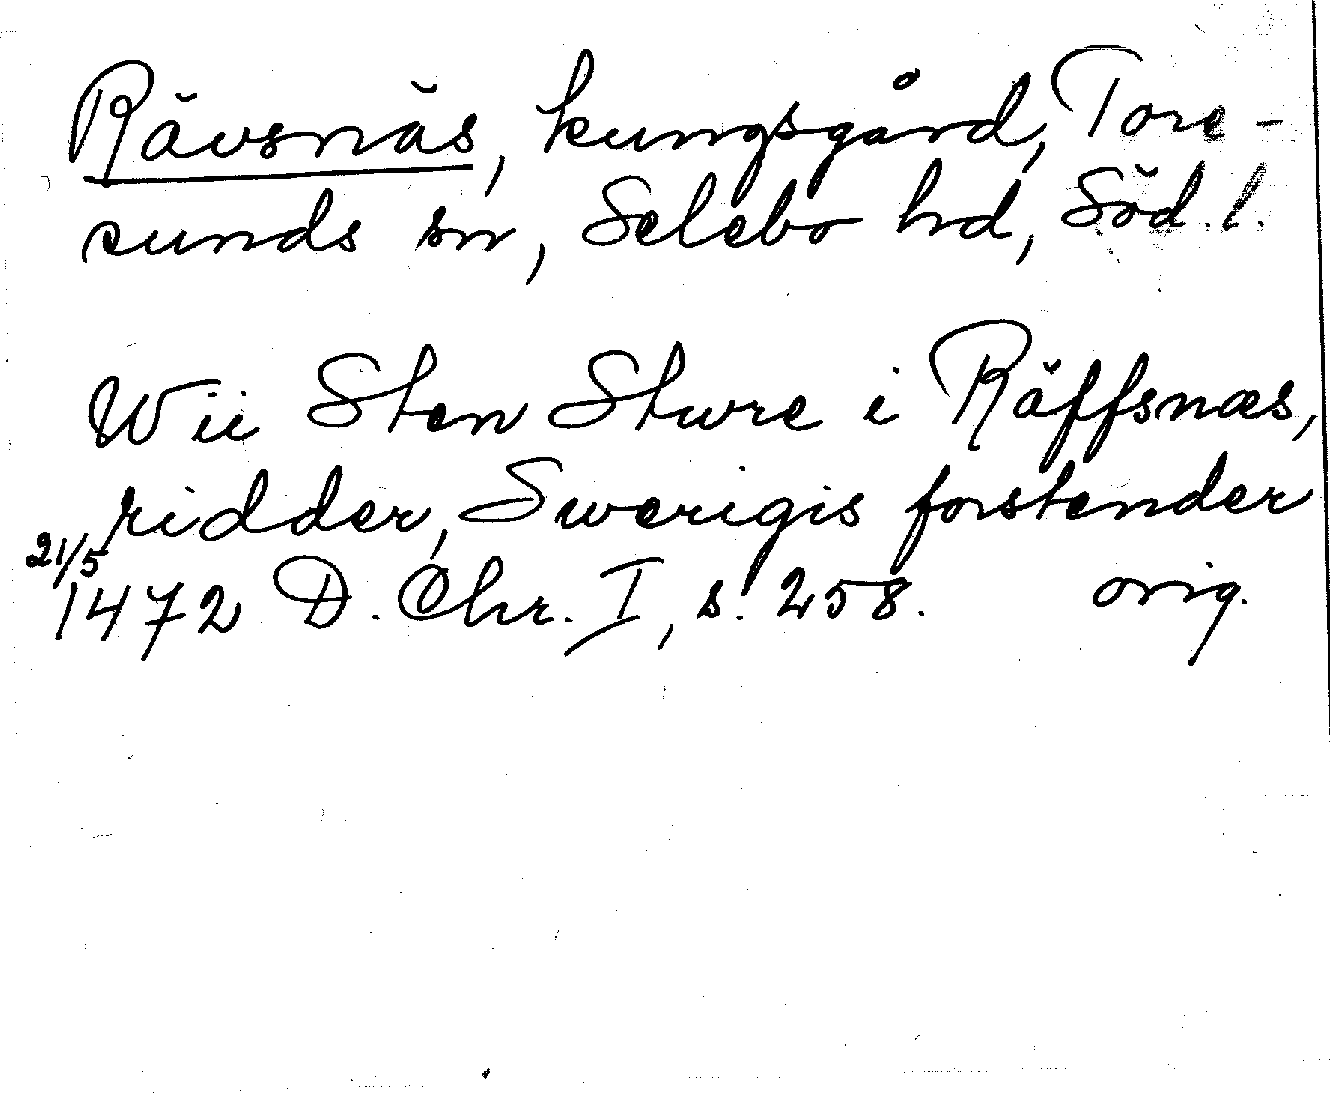 Rävsnäs, kungsgård, Tore-
sunds sn, Selebo hd, Söd. l.
Wii Sten Sture i Räffsnæs,
ridder, Swerigis forstender
21/5 1472 D. Chr. I, s. 258. orig.